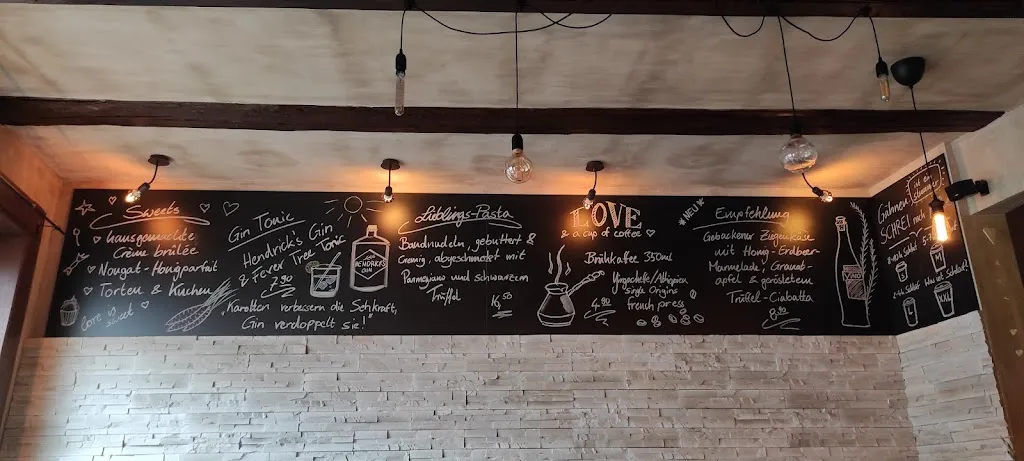 Sweets
hausgemachte
Creme brûlée
Nougat-Honigparfait
Torten & Kuchen
Love is sweet
Gin Tonic
Hendrick's Gin
& Fever Tree Tonic
7,90
HENDRICKS
GIN
„Karotten verbessern die Sehkraft,
Gin verdoppelt sie!"
Lieblings-Pasta
Bandnudeln, gebuttert &
Cremig, abgeschmeckt mit
Parmigiano und schwarzem
Trüffel
16,50
LOVE
& a cup of coffee
Brühkaffee 350ml
Single Origins
french press
4,90
*NEU*
Empfehlung
Gebackener Ziegenkäse
mit Honig-Erdbeer-
Marmelade, Granat-
apfel & geröstetem
Trüffel-Ciabatta
8,90
Gähnen
SCHREI nach
M
XXL